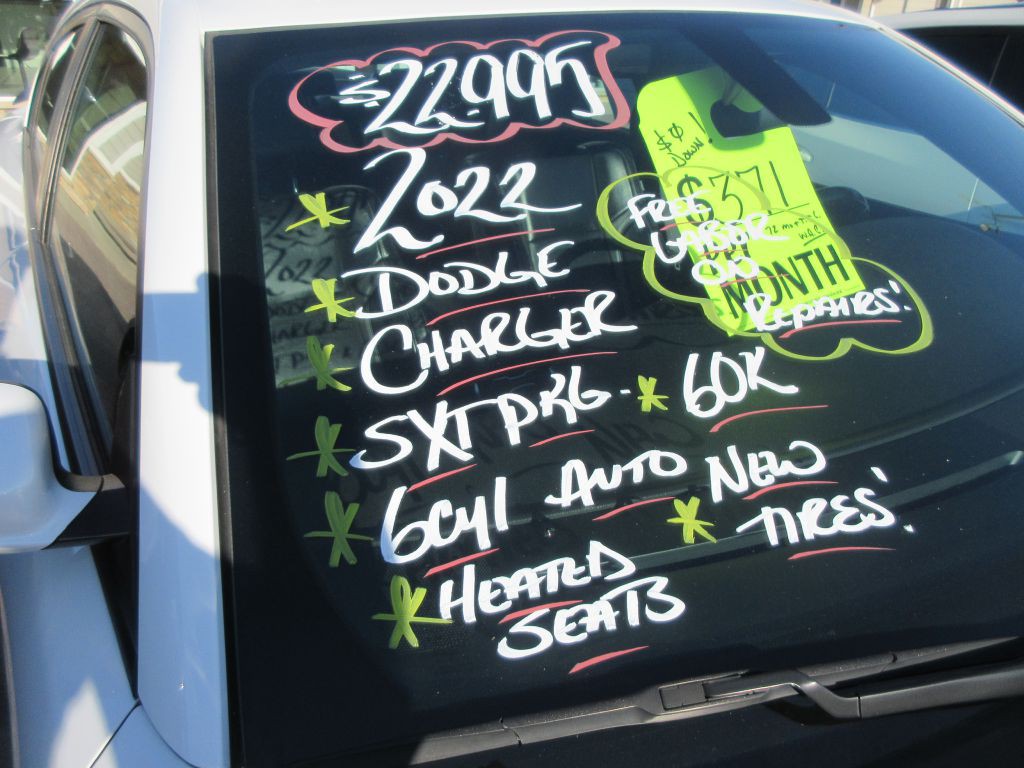 $22,995
2022
DODGE
CHARGER
SXT PKG.
60K
6Cyl AUTO
NEW
TIRES!
HEATED
SEATS
$0
DOWN!
$371
72 month
WAC
MONTH
FREE
LABOR
ON
REPAIRS!